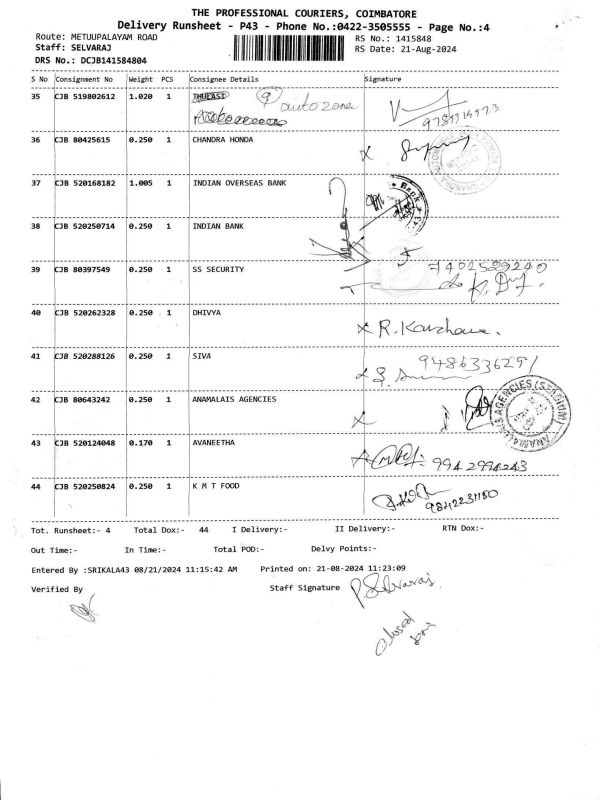 THE PROFESSIONAL COURIERS, COIMBATORE
Delivery Runsheet - P43 - Phone No.:0422-3505555 - Page No.:4
Route: METUUPALAYAM ROAD
Staff: SELVARAJ
DRS No.: DCJB141584804
RS No.: 1415848
RS Date: 21-Aug-2024
S No Consignment No Weight PCS Consignee Details Signature
35 CJB 519802612 1.020 1 THULASI autozone
36 CJB 80425615 0.250 1 CHANDRA HONDA
37 CJB 520168182 1.005 1 INDIAN OVERSEAS BANK
38 CJB 520250714 0.250 1 INDIAN BANK
39 CJB 80397549 0.250 1 SS SECURITY 7402599240
40 CJB 520262328 0.250 1 DHIVYA
41 CJB 520288126 0.250 1 SIVA 9486336291
42 CJB 80643242 0.250 1 ANAMALAIS AGENCIES
ANAMALAIS AGENCIES (STADIUM)
43 CJB 520124048 0.170 1 AVANEETHA 9942994243
44 CJB 520250824 0.250 1 K M T FOOD 9842231160
Tot. Runsheet:- 4 Total Dox:- 44 I Delivery:- II Delivery:- RTN Dox:-
Out Time:- In Time:- Total POD:- Delvy Points:-
Entered By :SRIKALA43 08/21/2024 11:15:42 AM Printed on: 21-08-2024 11:23:09
Verified By Staff Signature P. Selvaraj
closed